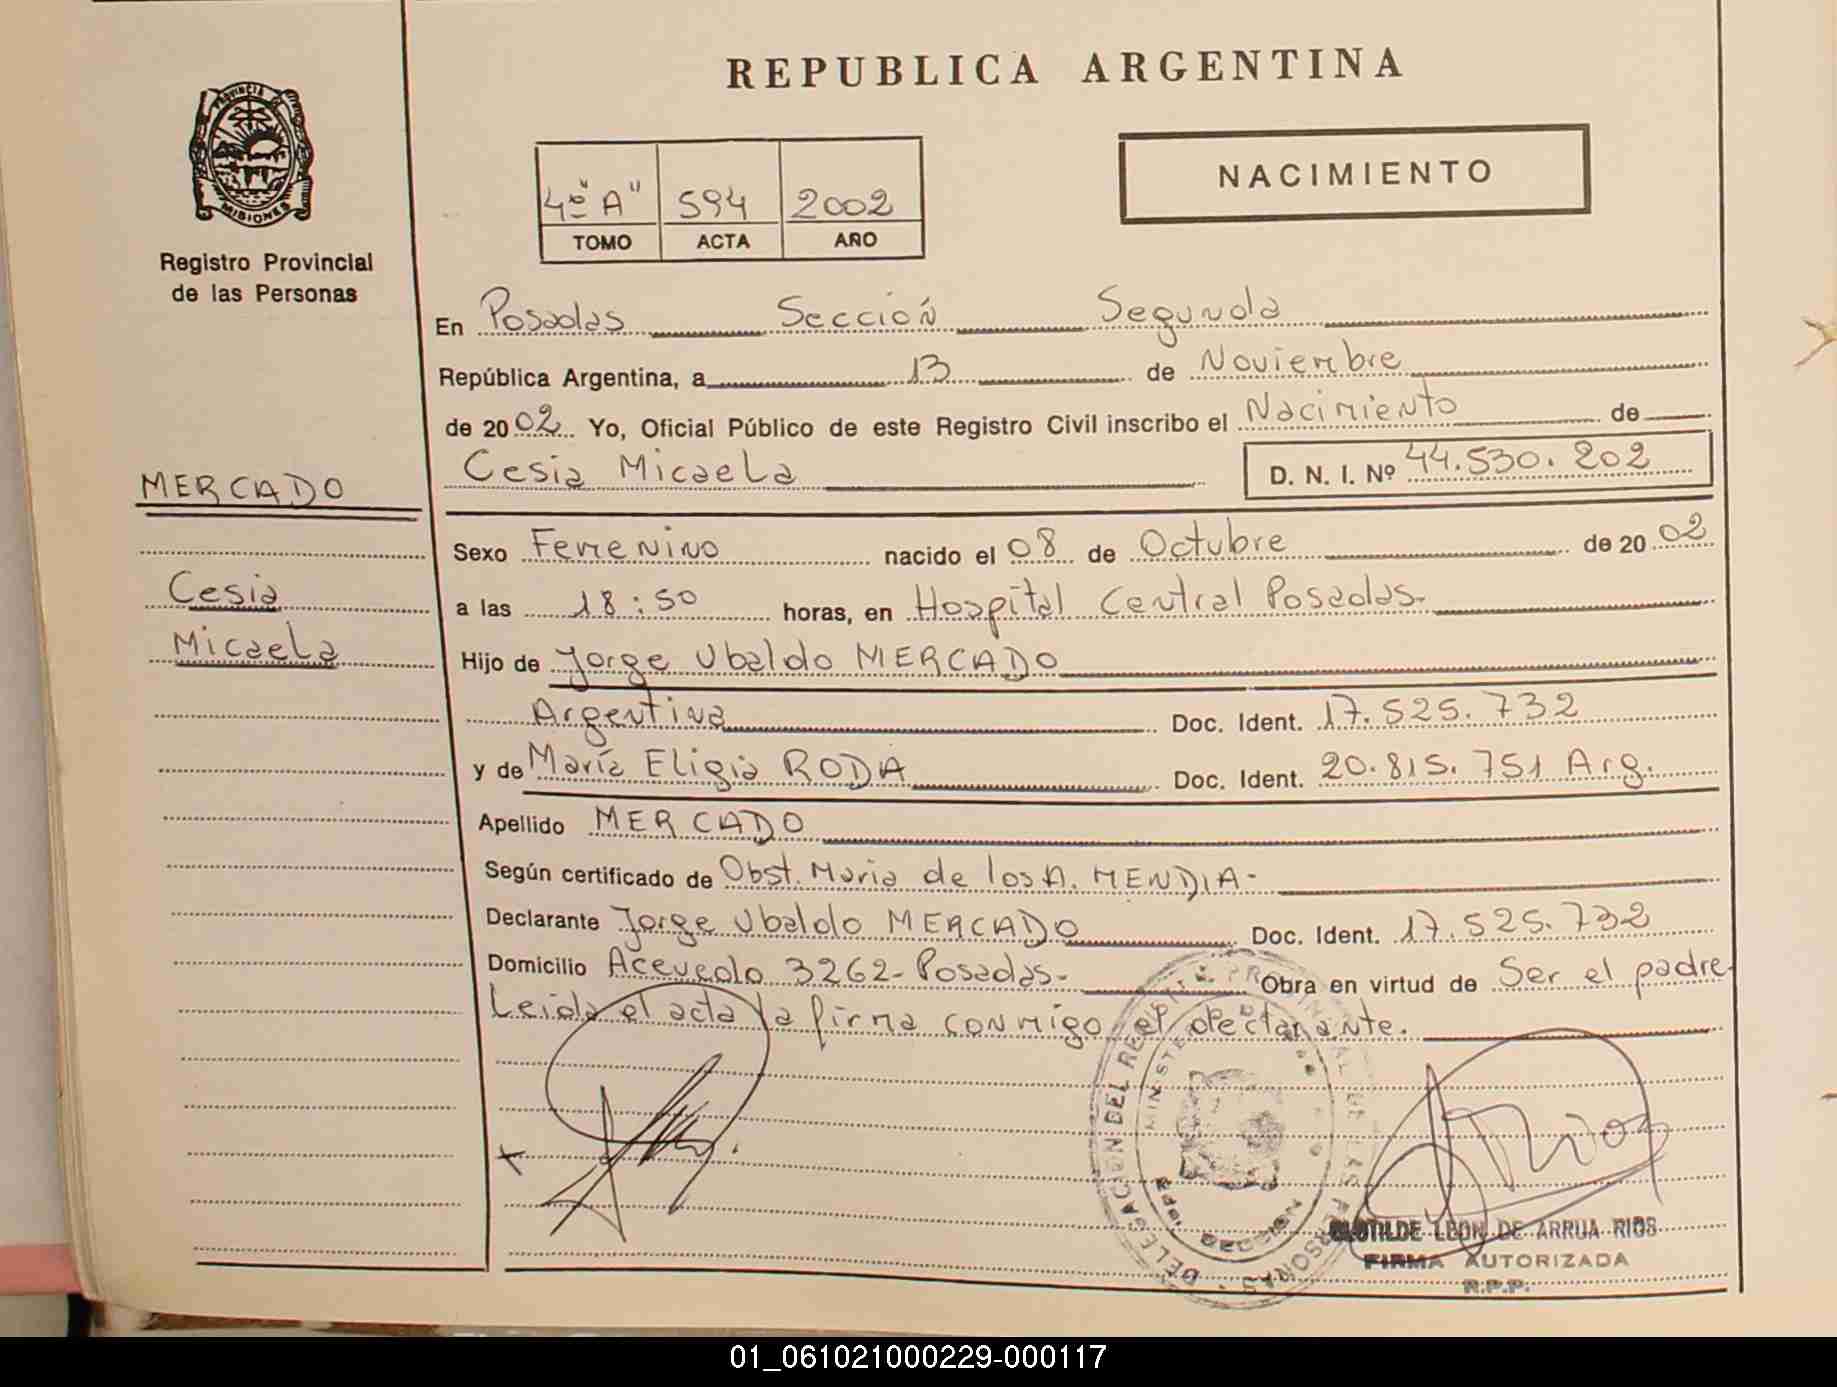 REPUBLICA ARGENTINA
PROVINCIA DE
MISIONES
Registro Provincial
de las Personas
NACIMIENTO
4º "A" 594 2002
TOMO ACTA AÑO
En Posadas Sección Segunda
República Argentina, a 13 de Noviembre
de 2002 Yo, Oficial Público de este Registro Civil inscribo el Nacimiento de
Cesia Micaela D. N. I. Nº 44.530.202
MERCADO
Cesia
Micaela
Sexo Femenino nacido el 08 de Octubre de 2002
a las 18:50 horas, en Hospital Central Posadas.
Hijo de Jorge Ubaldo MERCADO
Argentina Doc. Ident. 17.525.732
y de María Eligia RODA Doc. Ident. 20.815.751 Arg.
Apellido MERCADO
Según certificado de Obst. Maria de los A. MENDIA-
Declarante Jorge Ubaldo MERCADO Doc. Ident. 17.525.732
Domicilio Acevedo 3262-Posadas- Obra en virtud de Ser el padre-
Leida el acta la firma conmigo el declarante.
DELEGACION DEL REGISTRO PROVINCIAL DE LAS PERSONAS
CLOTILDE LEON DE ARRUA RIOS
FIRMA AUTORIZADA
R.P.P.
01_061021000229-000117